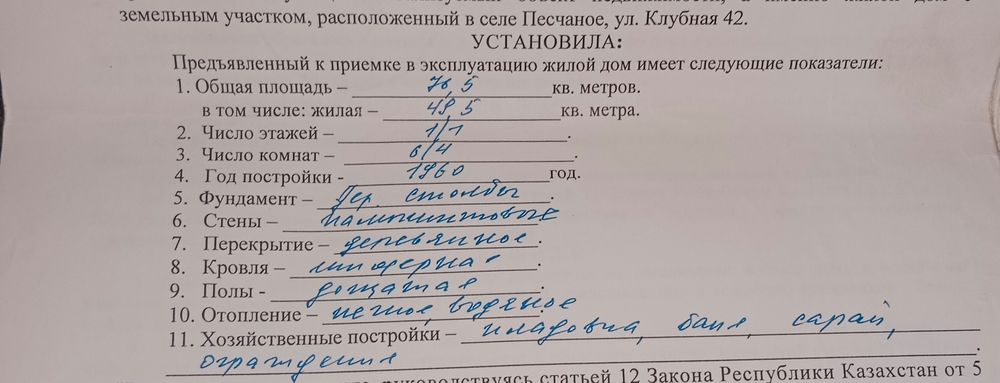 земельным участком, расположенный в селе Песчаное, ул. Клубная 42.
УСТАНОВИЛА:
Предъявленный к приемке в эксплуатацию жилой дом имеет следующие показатели:
1. Общая площадь – 76,5 кв. метров.
в том числе: жилая – 49,5 кв. метра.
2. Число этажей – 1/1.
3. Число комнат – 6/4.
4. Год постройки - 1960 год.
5. Фундамент – дер. столбы.
6. Стены –
7. Перекрытие – деревянное.
8. Кровля – шиферная.
9. Полы - дощатая.
10. Отопление – печное, водяное
11. Хозяйственные постройки – кладовка, баня, сарай,
ограждения.
руководствуясь статьей 12 Закона Республики Казахстан от 5